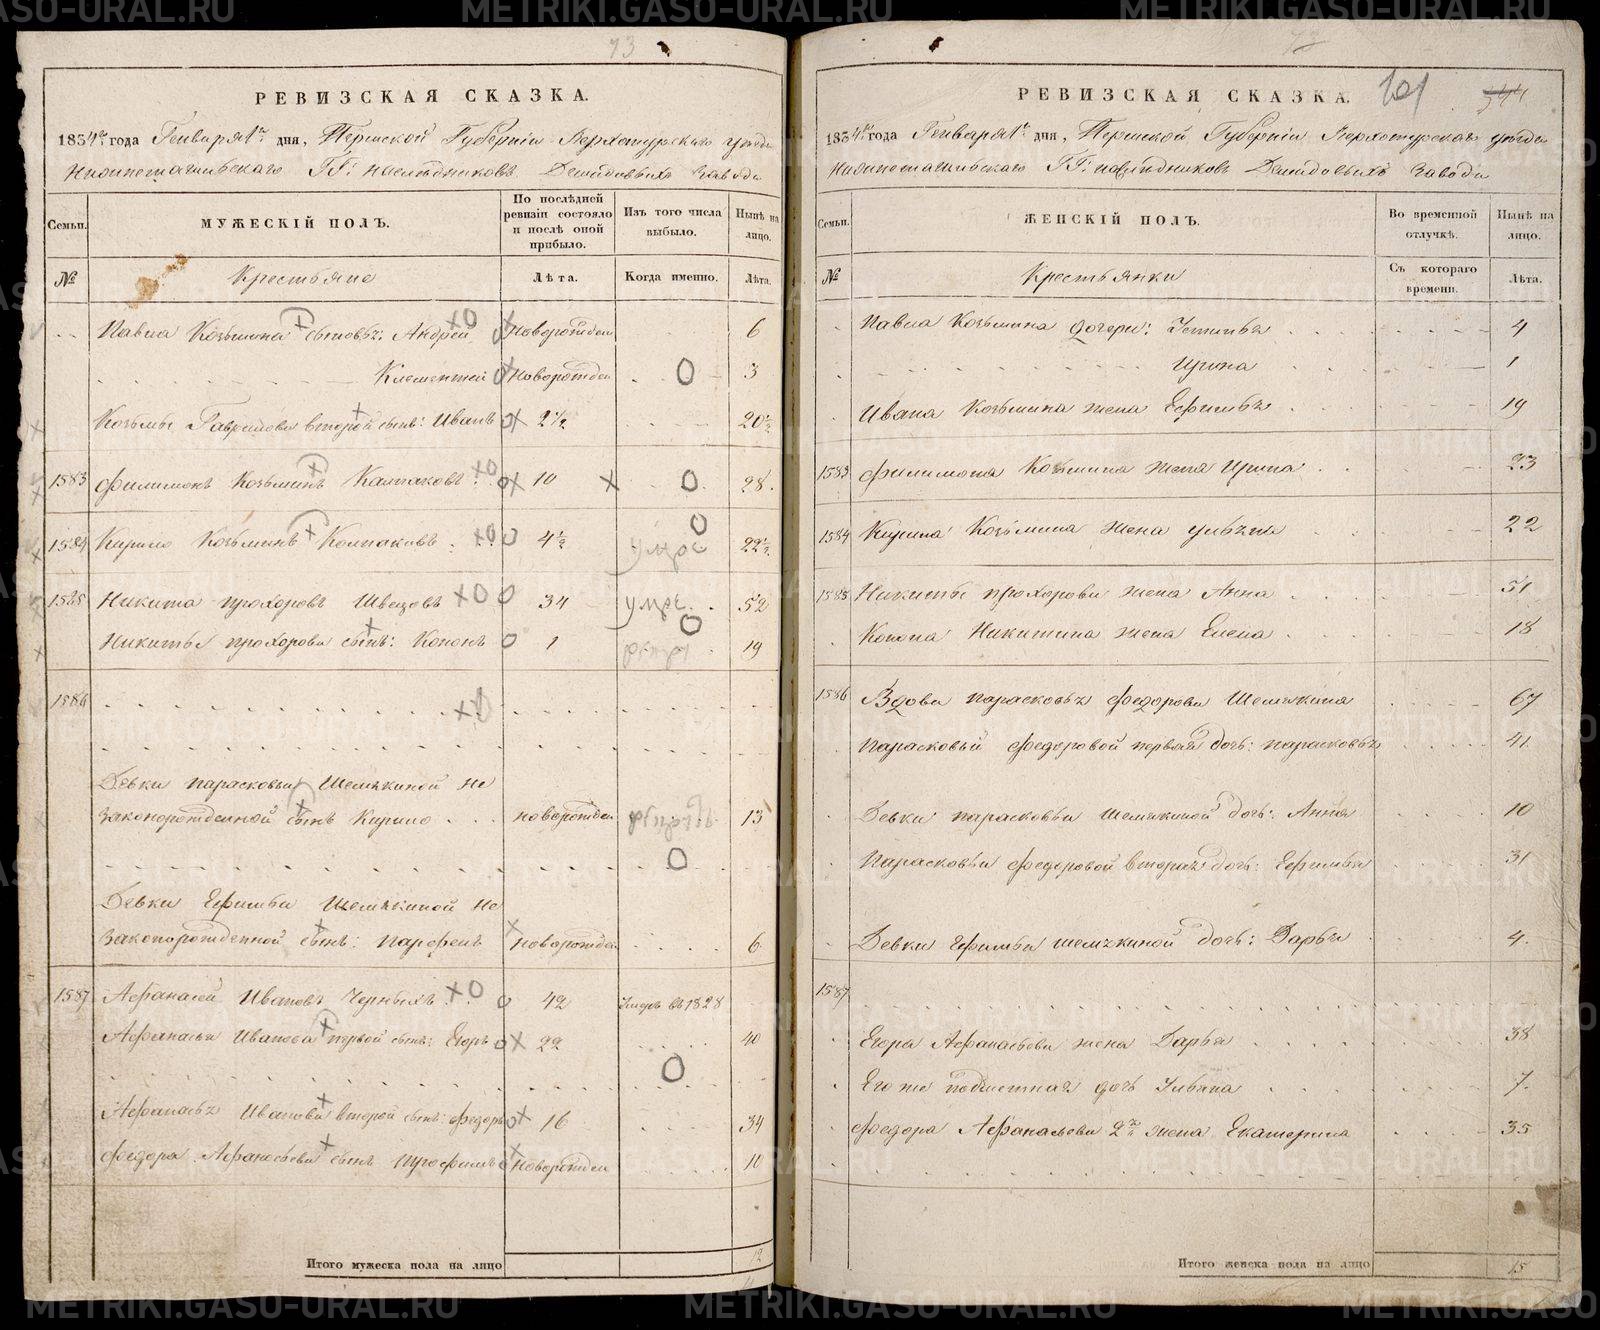 73
РЕВИЗСКАЯ СКАЗКА.
1834го года Генваря 1го дня, Пермской Губернии Верхотурскаго уезда
Нижнетагильскаго ГГ: наследниковъ Демидовыхъ завода
Семьи.
МУЖЕСКІЙ ПОЛЪ.
По послѣдней ревизіи состояло и послѣ оной прибыло.
Изъ того числа выбыло.
Нынѣ на лицо.
№
Крестьяне
Лѣта.
Когда именно.
Лѣта.
Павла Козьмина сыновья: Андрей новорожден 6
Климентей новорожден 3
Козьмы Гаврилова второй сынъ: Иванъ 2½ 20½
1583 Филимонъ Козьминъ Калпаковъ 10 28
1584 Кирило Козьминъ Колпаковъ 4½ умре 22½
1585 Никита Прохоровъ Швецовъ 34 умре 52
Никиты Прохорова сынъ: Кононъ 1 19
1586
Девки Парасковьи Шемякиной не
законорожденной сынъ Кирило новорожден 13
Девки Ефимьи Шемякиной не
законорожденной сынъ: Парфенъ новорожден 6
1587 Афанасей Ивановъ Черныхъ 42 умеръ въ 1828
Афанасья Иванова первой сынъ: Егоръ 22 40
Афанасья Иванова второй сынъ: Федоръ 16 34
Федора Афанасьева сынъ Трофимъ новорожден 10
Итого мужеска пола на лицо 12
73
101
544
РЕВИЗСКАЯ СКАЗКА.
1834го года Генваря 1го дня, Пермской Губернии Верхотурскаго уезда
Нижнетагильскаго ГГ: наследниковъ Демидовыхъ завода
Семьи.
ЖЕНСКІЙ ПОЛЪ.
Во временной отлучкѣ.
Нынѣ на лицо.
№
Крестьянки
Съ котораго времени.
Лѣта.
Павла Козьмина дочери: Устинья 4
Ирина 1
Ивана Козьмина жена Ефимья 19
1583 Филимона Козьмина жена Ирина 23
1584 Кирила Козьмина жена Ульяна 22
1585 Никиты Прохорова жена Анна 51
Конона Никитина жена Елена 18
1586 Вдова Парасковья Федорова Шемякина 67
Парасковьи Федоровой первая дочь: Парасковья 41
Девки Парасковьи Шемякиной дочь: Анна 10
Парасковьи Федоровой вторая дочь: Ефимья 31
Девки Ефимьи Шемякиной дочь: Дарья 4
1587
Егора Афанасьева жена Дарья 38
Его же подметная дочь Ульяна 7
Федора Афанасьева 2я жена Екатерина 35
Итого женска пола на лицо 15
METRIKI.GASO-URAL.RU